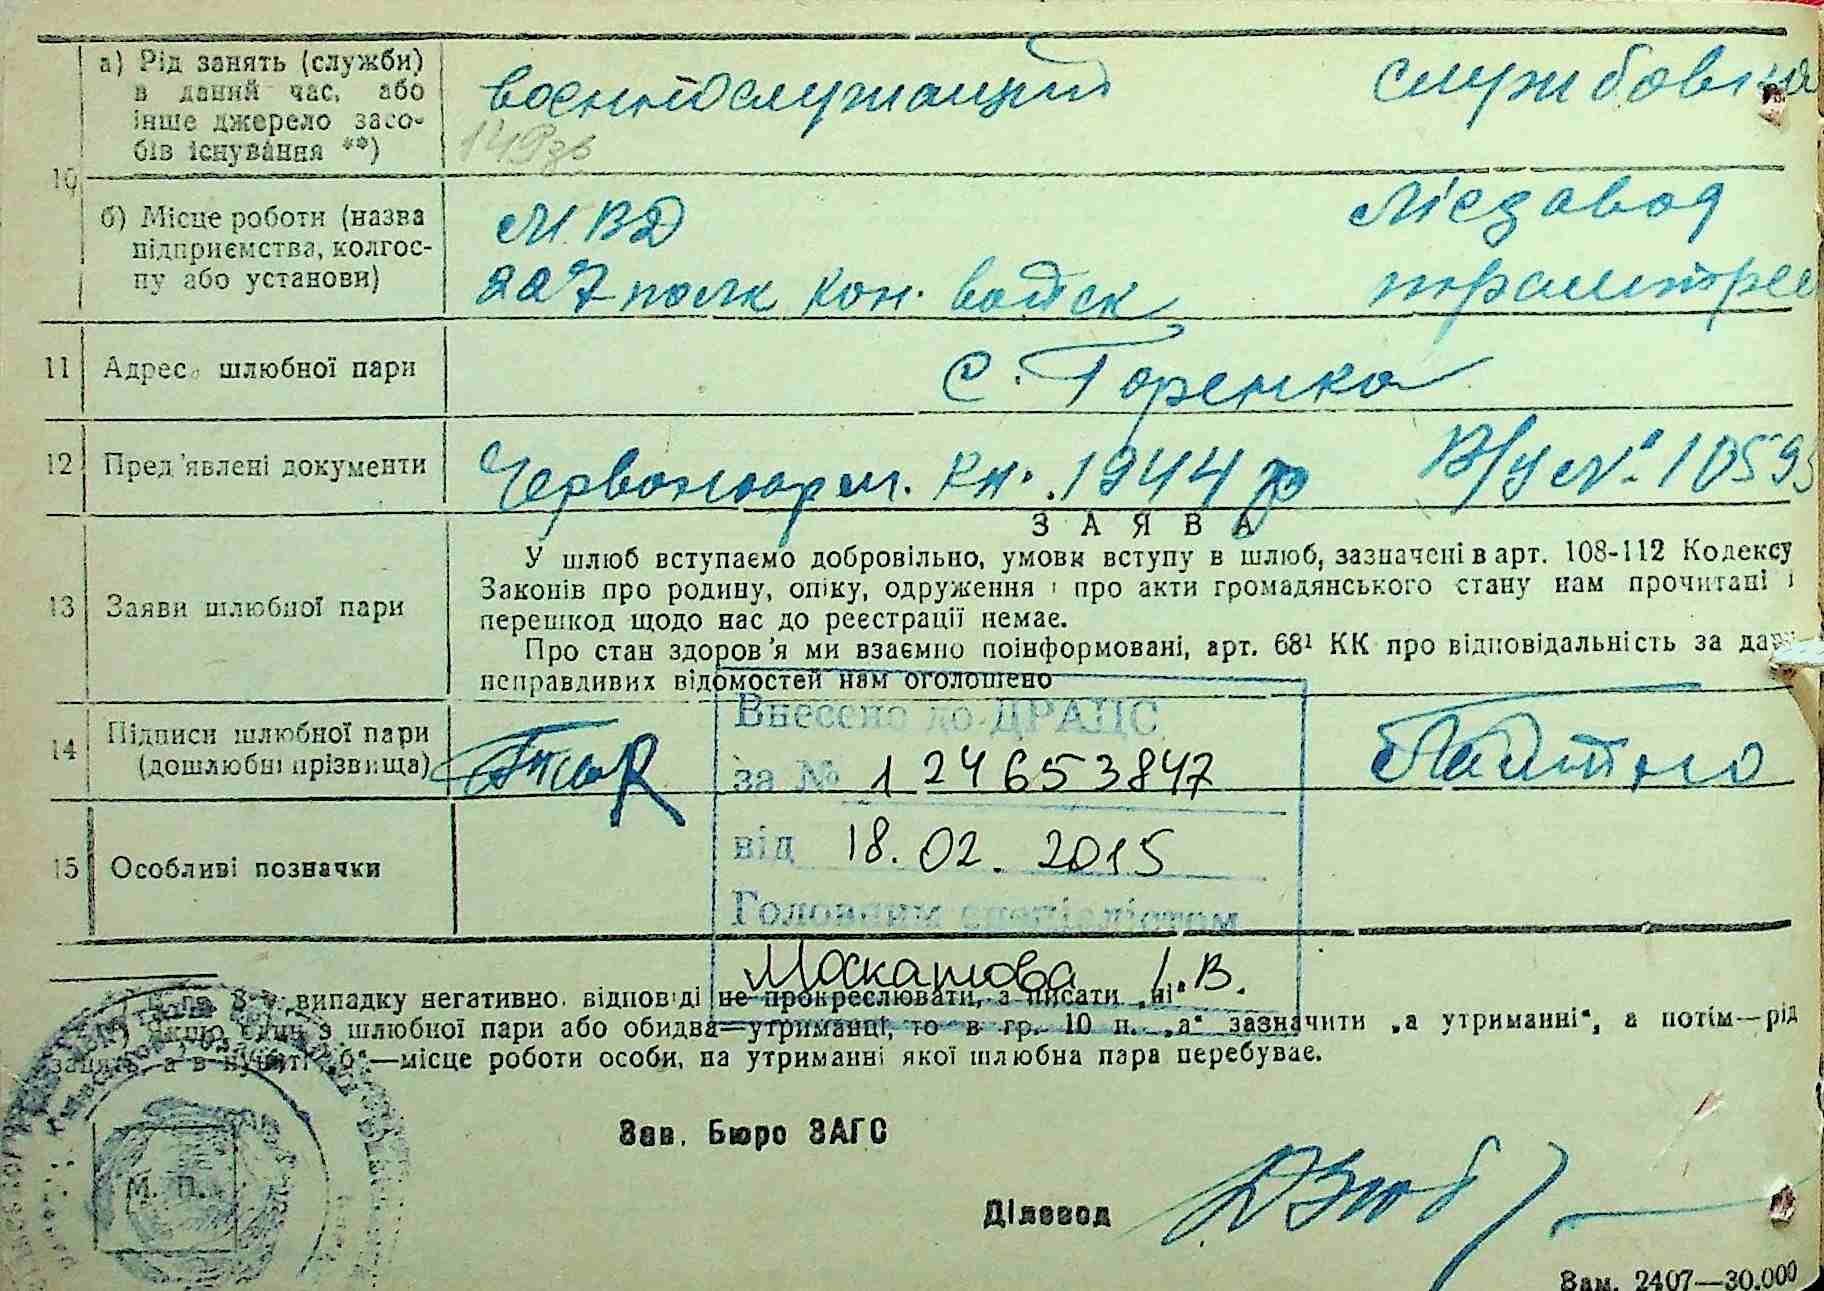 10
а) Рід занять (служби)
в даний час, або
інше джерело засо-
бів існування **)
военнослужащий
службов
149зв
б) Місце роботи (назва
підприємства, колгос-
пу або установи)
М.ВД
227 полк кон. войск
Лісзавод
11 Адреса шлюбної пари
с. Горенка
12 Пред'явлені документи
Червоноарм. кн. 1944 р
В/у № 10593
13 Заяви шлюбної пари
ЗАЯВА
У шлюб вступаємо добровільно, умови вступу в шлюб, зазначені в арт. 108-112 Кодексу
Законів про родину, опіку, одруження і про акти громадянського стану нам прочитані і
перешкод щодо нас до реєстрації немає.
Про стан здоров'я ми взаємно поінформовані, арт. 68¹ КК про відповідальність за дачу
неправдивих відомостей нам оголошено
14 Підписи шлюбної пари
(дошлюбні прізвища)
Внесено до ДРАЦС
за № 124653847
від 18.02.2015
Головним спеціалістом
Москатова І.В.
15 Особливі позначки
випадку негативно. відповіді не прокреслювати, а писати „ні“
Якщо один з шлюбної пари або обидва—утриманці, то в гр. 10 п. „а“ зазначити „а утриманні“, а потім—рід
занять, а в пункті „б“—місце роботи особи, на утриманні якої шлюбна пара перебуває.
Зав. Бюро ЗАГС
М. П.
Діловод
Зам. 2407—30.000